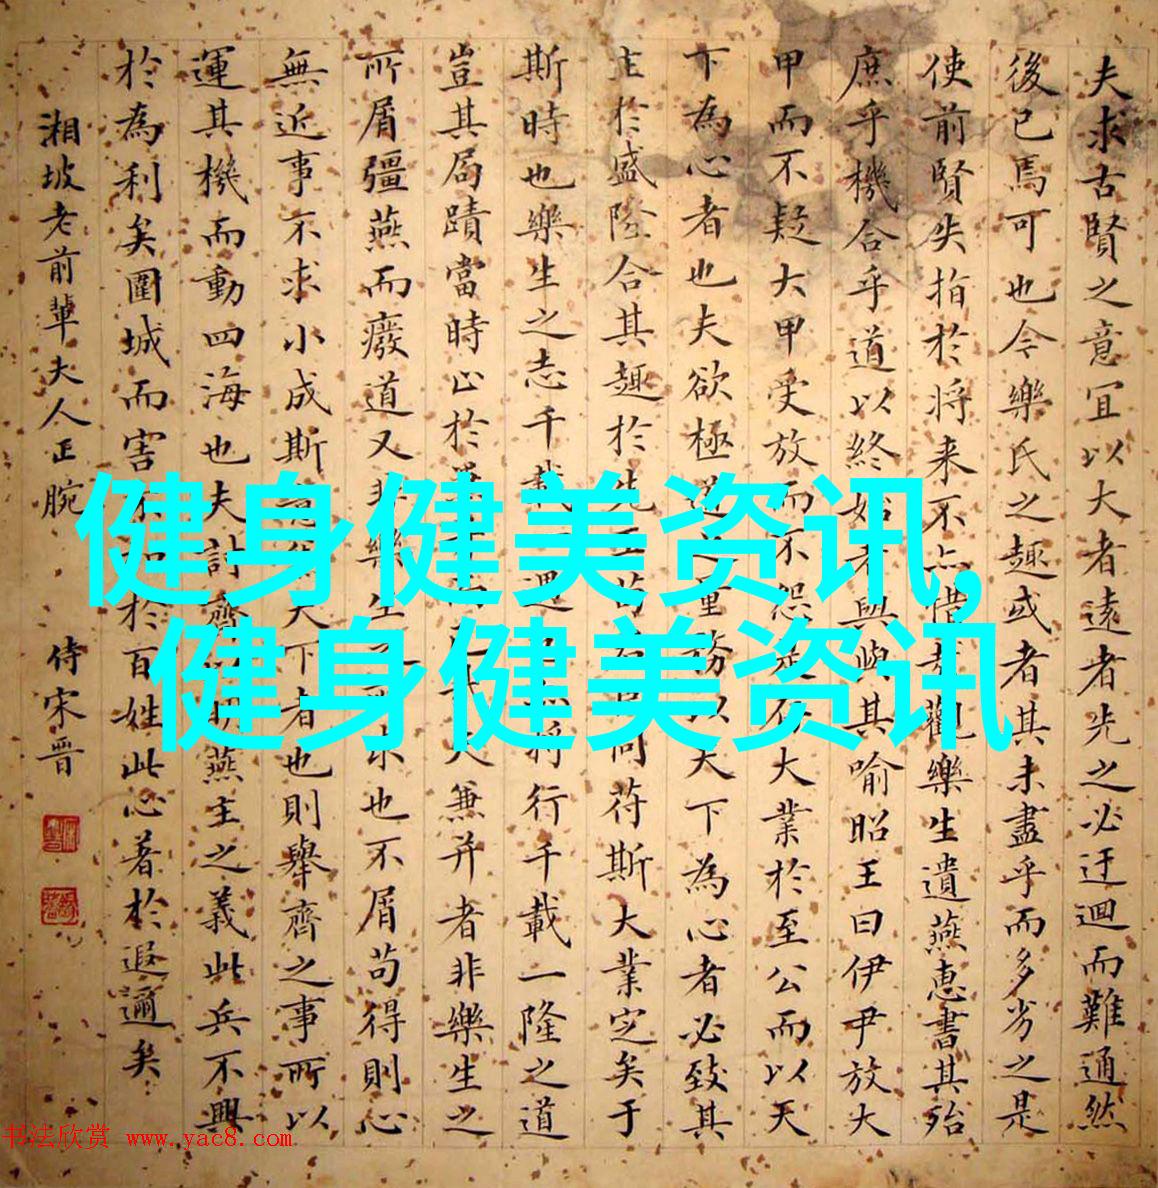 夫求古賢之意宜以大者遠者先之必迂迴而難通然
後已焉可也今樂氏之趣或者其未盡乎而多劣之是
使前賢失指於将来不亦惜哉觀樂生遺燕惠書其殆
庶乎機合乎道以終始者與嶼其喻昭王曰伊尹放大
甲而不疑大甲受放而不怨是存大業於至公而以天
下為心者也夫欲極道之量務以天下為心者必致其
主於盛隆合其趣於先王苟君臣同苻斯大業定矣于
斯時也樂生之志千載一遇也亦将行千載一隆之道
豈其局蹟當時止於兼并而已哉夫兼并者非樂生之
所屑彊燕而廢道又非樂生之所求也不屑苟得則心
無近事不求小成斯意兼天下者也則舉齊之事所以
運其機而動四海也夫討齊以明燕主之義此兵不興
於為利矣圍城而害不加於百姓此心著於遐邇矣
湘坡老前輩夫人正腕 侍宋晋
健身健美资讯,
健身健美资讯
书法欣赏 www.yac8.com